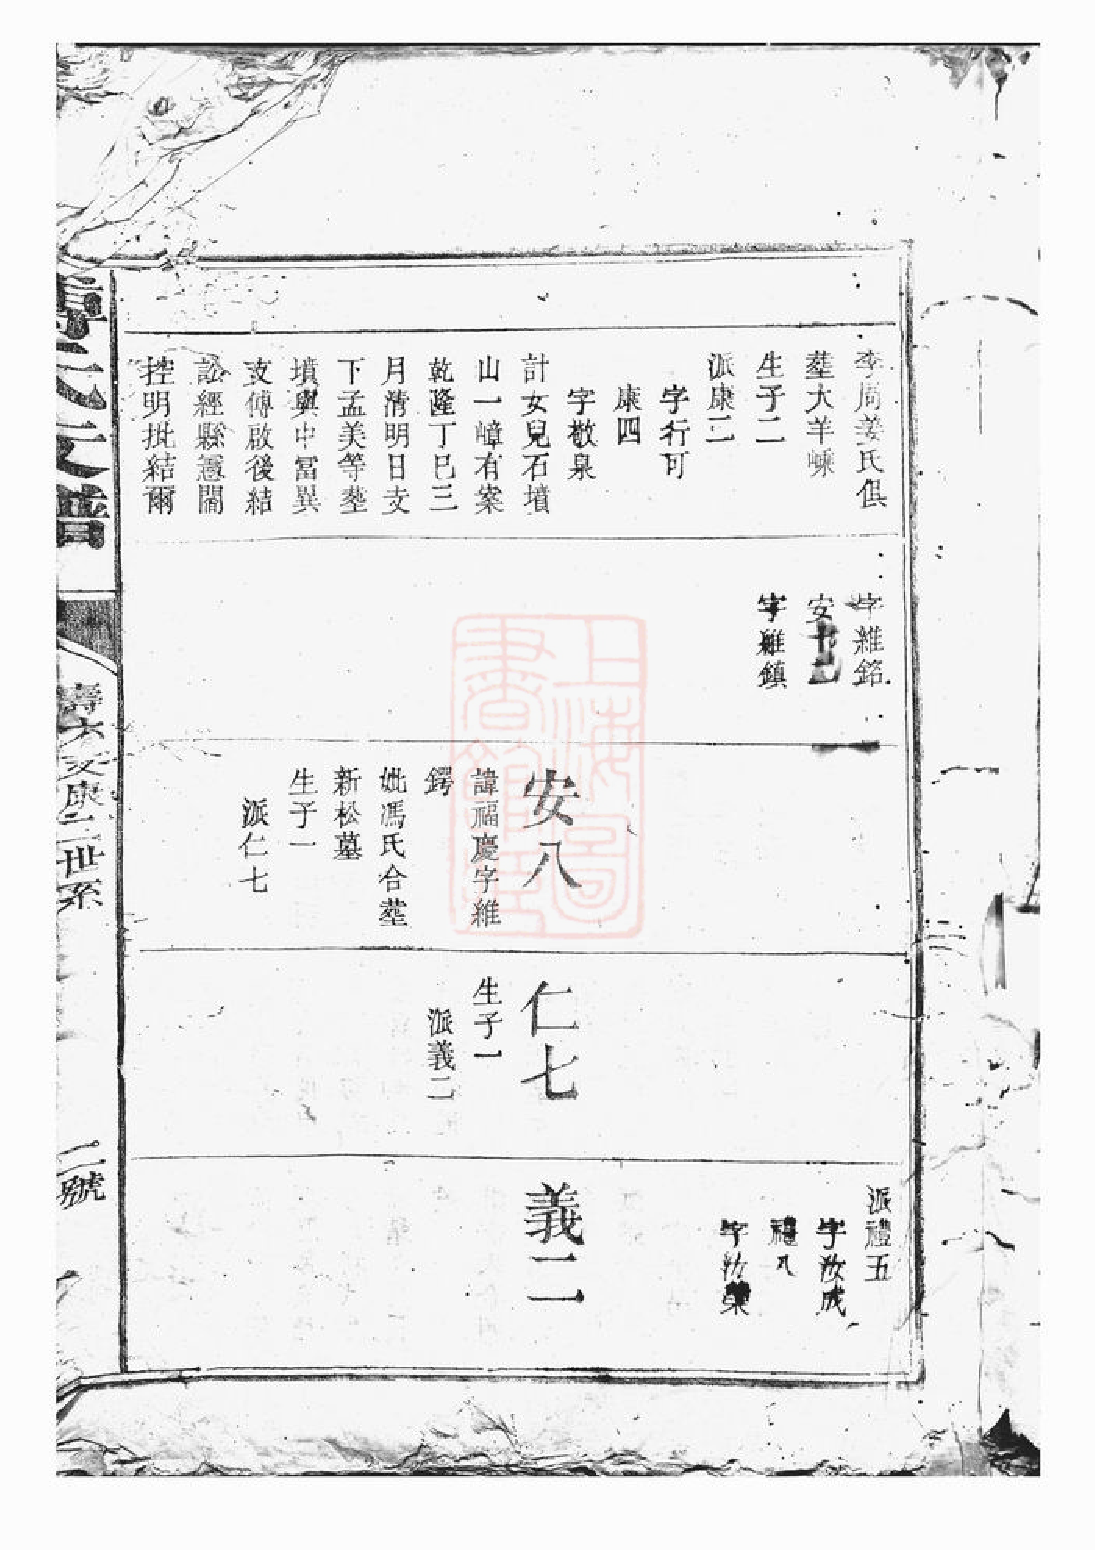 李周姜氏俱
塟大羊嵊
生子二
派康二
字行可
康四
字敬泉
計女兒石墳
山一嶂有案
乾隆丁巳三
月清明日支
下孟美等塟
墳與中富異
支傅啟後結
訟經縣憲閻
控明批結爾
字維銘
安
字維鎮
安八
諱福慶字維
鍔
妣馮氏合塟
新松墓
生子一
派仁七
仁七
生子一
派義二
派禮五
字汝成
禮八
字汝榮
義二
傅氏支譜
壽六支康二世系
二號
上海圖書館藏